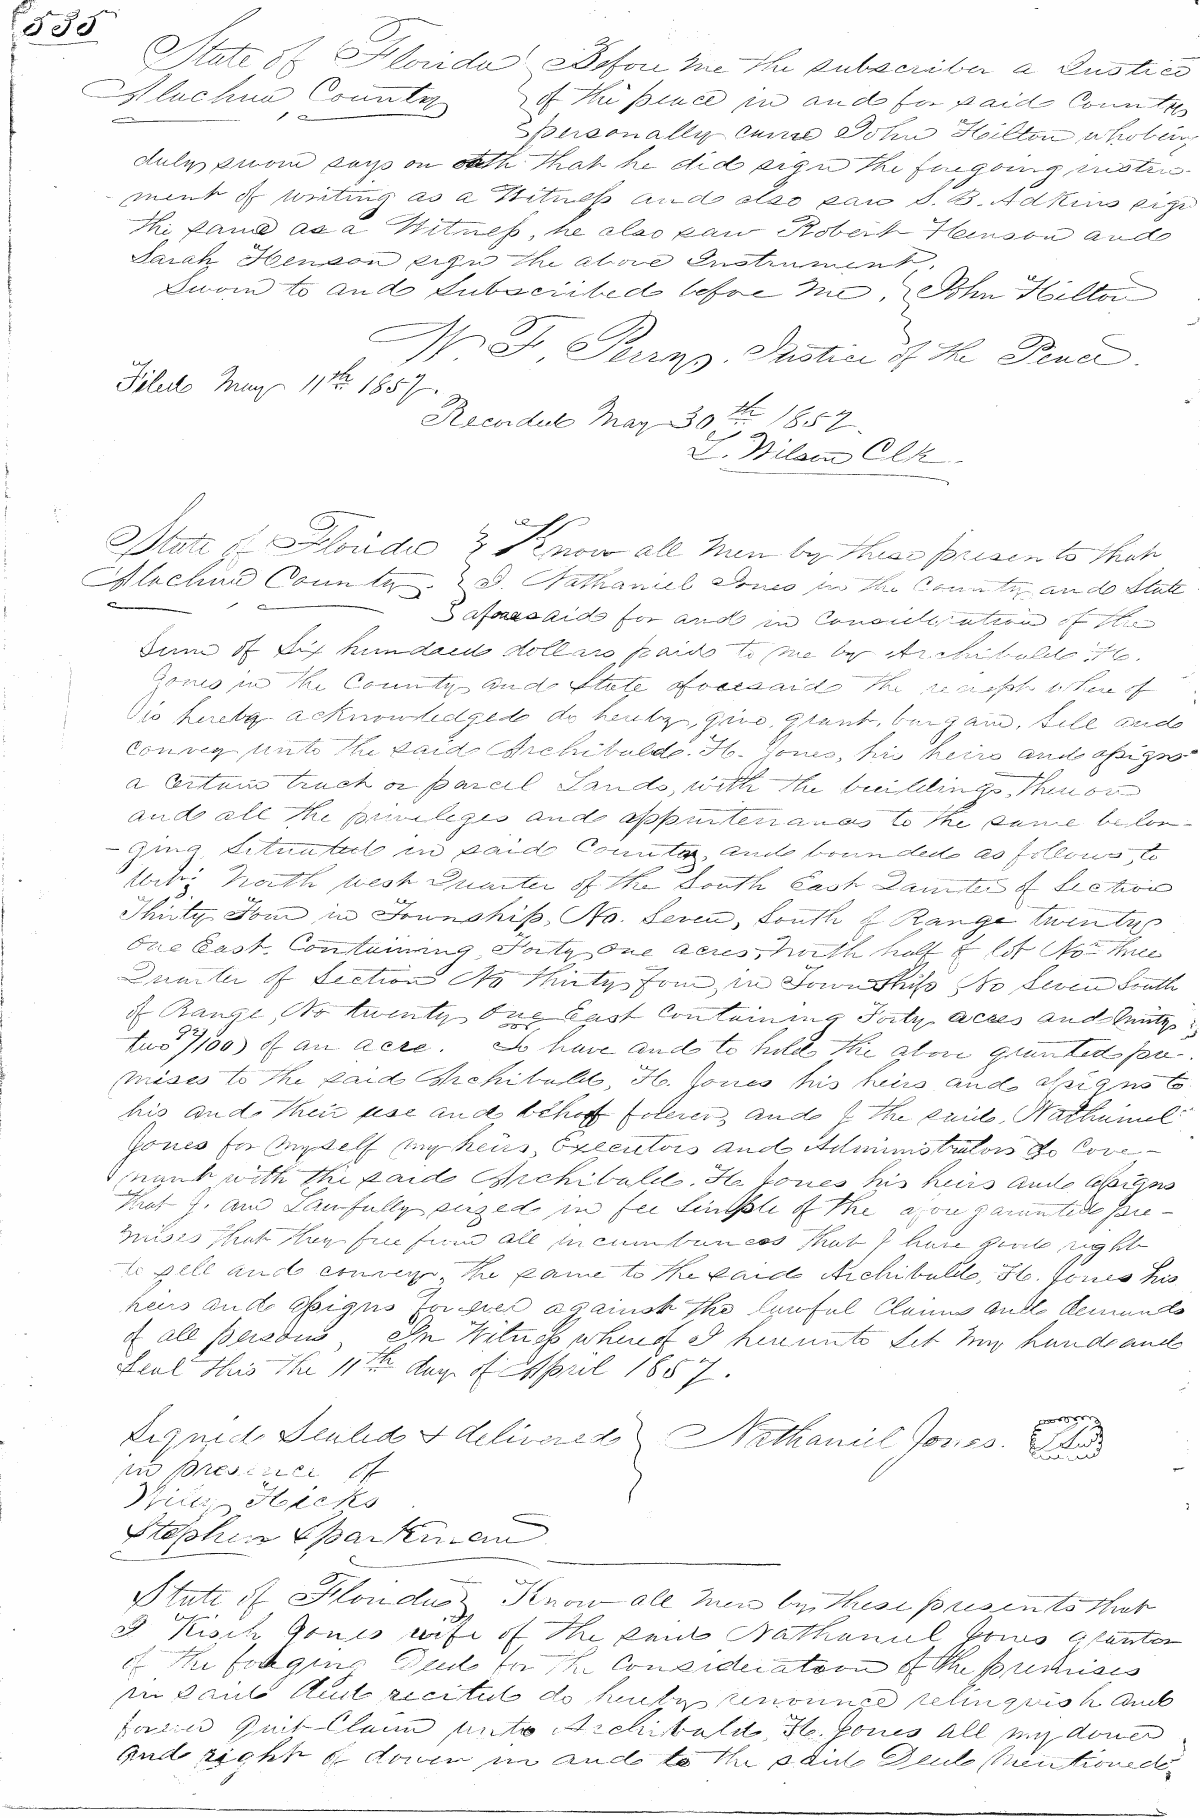 535
State of Florida } Before me the subscriber a Justice
Alachua County } of the peace in and for said County
} personally came John Hilton who being
duly sworn says on oath that he did sign the foregoing instru-
ment of writing as a Witness and also saw S. B. Adkins sign
the same as a Witness, he also saw Robert Henson and
Sarah Henson sign the above Instrument.
Sworn to and Subscribed before me, } John Hilton
W. F. Perry, Justice of the Peace.
Filed May 11th 1857.
Recorded May 30th 1857.
L. Wilson Clk.
State of Florida } Know all Men by these presents that
Alachua County. } I Nathaniel Jones in the County and State
} aforesaid for and in consideration of the
Sum of Six hundred dollars paid to me by Archibald H.
Jones in the County and State aforesaid the receipt where of
is hereby acknowledged do hereby, give, grant, bargain, Sell and
convey unto the said Archibald. H. Jones, his heirs and assigns
a certain track or parcel Lands, with the buildings, thereon
and all the privileges and appurtenances to the same belon-
-ging Situated in said County, and bounded as follows, to
Wit; North west Quarter of the South East Quarter of Section
Thirty Four in Township, No. Seven, South of Range twenty
one East. Containing, Forty one acres, North half of lot No. three
Quarter of Section No Thirty four, in Township No Seven South
of Range, No twenty one East containing Forty acres and Ninty
two 92/100) of an acre. To have and to hold the above granted pre-
mises to the said Archibald, H. Jones his heirs and assigns to
his and their use and behoff forever, and I the said, Nathaniel
Jones for myself my heirs, Executors and Administrators do Cove-
nant with the said Archibald. H. Jones his heirs and assigns
that I. am Lawfully seized in fee Simple of the afore garunted pre-
mises that they free from all incumbrances that I have good right
to sell and convey, the same to the said Archibald, H. Jones his
heirs and assigns forever against the lawful Claims and demands
of all persons, In Witness whereof I hereunto Set my hand and
Seal this the 11th day of April 1857.
Signed Sealed & delivered } Nathaniel Jones.
in presence of
Wiley Hicks
Stephen Sparkman
State of Florida } Know all Men by these presents that
I Kisih Jones wife of the said Nathaniel Jones grantor
of the forgoing Deed for the consideration of the premises
in said deed recited do hereby renounce relinquish and
forever Quit-Claim unto Archibald, H. Jones all my dower
and right of dower in and to the said Deed Mentioned